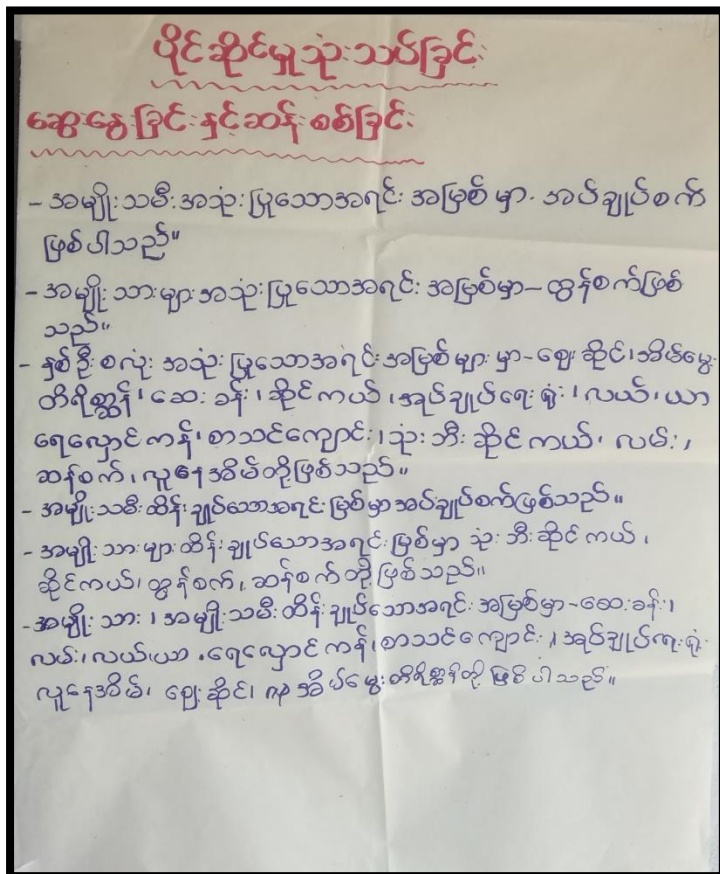 ပိုင်ဆိုင်မှုသုံးသပ်ခြင်း
ဆွေးနွေးခြင်းနှင့်ဆန်းစစ်ခြင်း
- အမျိုးသမီးအသုံးပြုသောအရင်းအမြစ်မှာ- အပ်ချုပ်စက်
ဖြစ်ပါသည်။
- အမျိုးသားများအသုံးပြုသောအရင်းအမြစ်မှာ-ထွန်စက်ဖြစ်
သည်။
- နှစ်ဦးစလုံးအသုံးပြုသောအရင်းအမြစ်များမှာ-ဈေးဆိုင်၊အိမ်မွေး
တိရိစ္ဆာန်၊ဆေးခန်း၊ဆိုင်ကယ်၊အုပ်ချုပ်ရေးရုံး၊လယ်၊ယာ
ရေလှောင်ကန်၊စာသင်ကျောင်း၊သုံးဘီးဆိုင်ကယ်၊လမ်း၊
ဆန်စက်၊လူနေအိမ်တို့ဖြစ်သည်။
- အမျိုးသမီးထိန်းချုပ်သောအရင်းမြစ်မှာအပ်ချုပ်စက်ဖြစ်သည်။
- အမျိုးသားများထိန်းချုပ်သောအရင်းမြစ်မှာ သုံးဘီးဆိုင်ကယ်၊
ဆိုင်ကယ်၊ထွန်စက်၊ဆန်စက်တို့ဖြစ်သည်။
- အမျိုးသား၊အမျိုးသမီးထိန်းချုပ်သောအရင်းအမြစ်မှာ-ဆေးခန်း၊
လမ်း၊လယ်၊ယာ၊ရေလှောင်ကန်၊စာသင်ကျောင်း၊အုပ်ချုပ်ရေးရုံး
လူနေအိမ်၊ဈေးဆိုင်၊အိမ်မွေးတိရိစ္ဆာန်တို့ဖြစ်ပါသည်။